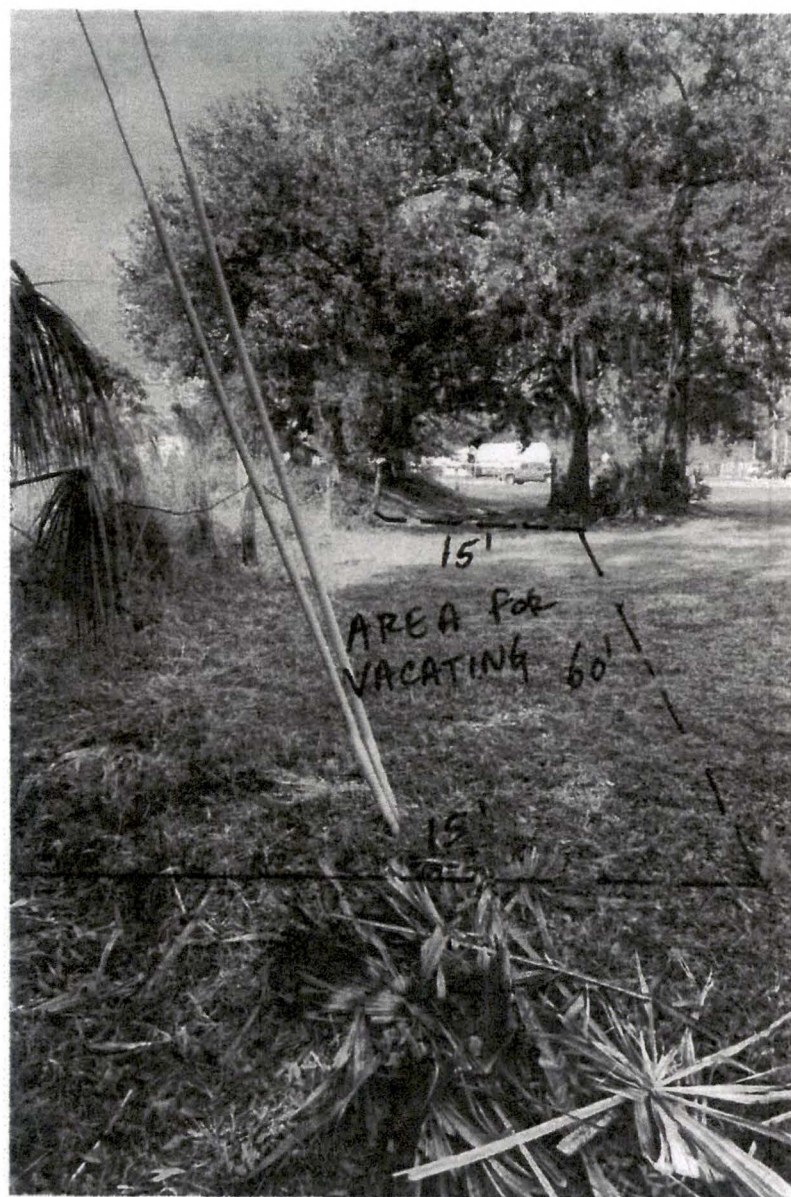 15'
AREA FOR
VACATING 60'
15'